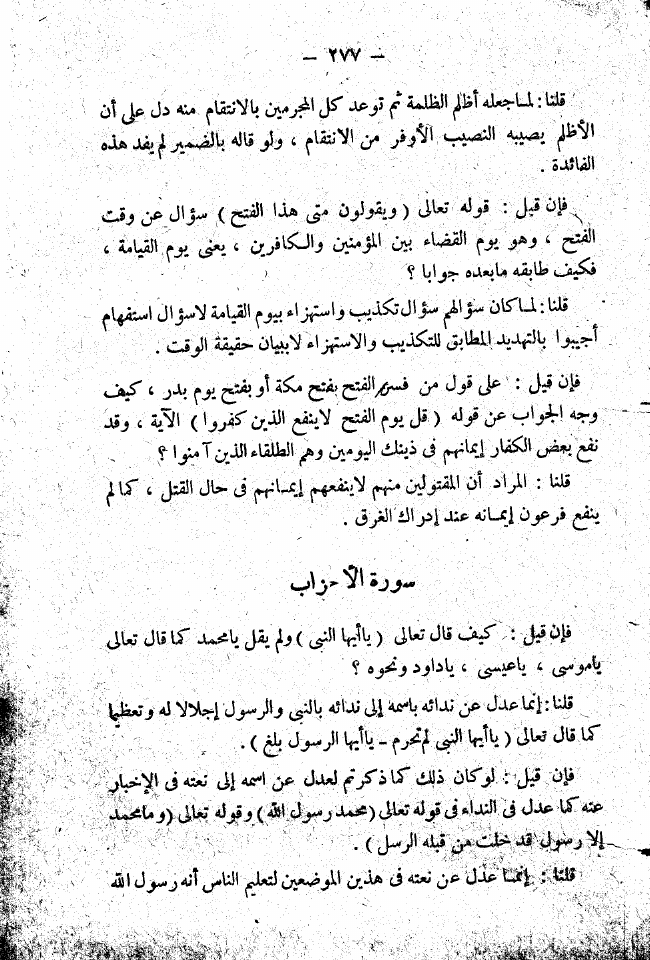 — ٢٧٧ —
قلنا: لما جعله أظلم الظلمة ثم توعد كل المجرمين بالانتقام منه دل على أن
الأظلم يصيبه النصيب الأوفر من الانتقام ، ولو قاله بالضمير لم يفد هذه
الفائدة .
فإن قيل : قوله تعالى ( ويقولون متى هذا الفتح ) سؤال عن وقت
الفتح ، وهو يوم القضاء بين المؤمنين والكافرين ، يعنى يوم القيامة ،
فكيف طابقه مابعده جوابا ؟
قلنا: لما كان سؤالهم سؤال تكذيب واستهزاء بيوم القيامة لاسؤال استفهام
أجيبوا بالتهديد المطابق للتكذيب والاستهزاء لاببيان حقيقة الوقت .
فإن قيل : على قول من فسر الفتح بفتح مكة أو بفتح يوم بدر ، كيف
وجه الجواب عن قوله ( قل يوم الفتح لاينفع الذين كفروا ) الآية ، وقد
نفع بعض الكفار إيمانهم فى ذينك اليومين وهم الطلقاء الذين آمنوا ؟
قلنا : المراد أن المقتولين منهم لاينفعهم إيمانهم فى حال القتل ، كما لم
ينفع فرعون إيمانه عند إدراك الغرق .
سورة الأحزاب
فإن قيل : كيف قال تعالى ( ياأيها النبى ) ولم يقل يامحمد كما قال تعالى
ياموسى ، ياعيسى ، ياداود ونحوه ؟
قلنا: إنما عدل عن ندائه باسمه إلى ندائه بالنبى والرسول إجلالا له وتعظيما
كما قال تعالى ( ياأيها النبى لم تحرم – ياأيها الرسول بلغ ) .
فإن قيل : لوكان ذلك كما ذكرتم لعدل عن اسمه إلى نعته فى الإخبار
عنه كما عدل فى النداء فى قوله تعالى (محمد رسول الله) وقوله تعالى (ومامحمد
إلا رسول قد خلت من قبله الرسل ) .
قلنا : إنما عدل عن نعته فى هذين الموضعين لتعليم الناس أنه رسول الله